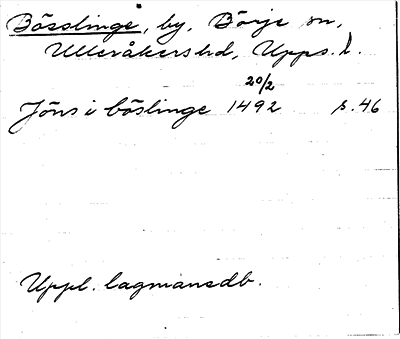 Bösslinge, by, Börje sn,
Ulleråkers hd, Upps. l.
20/2
Jöns i böslinge 1492 s. 46
Uppl. lagmansdb.